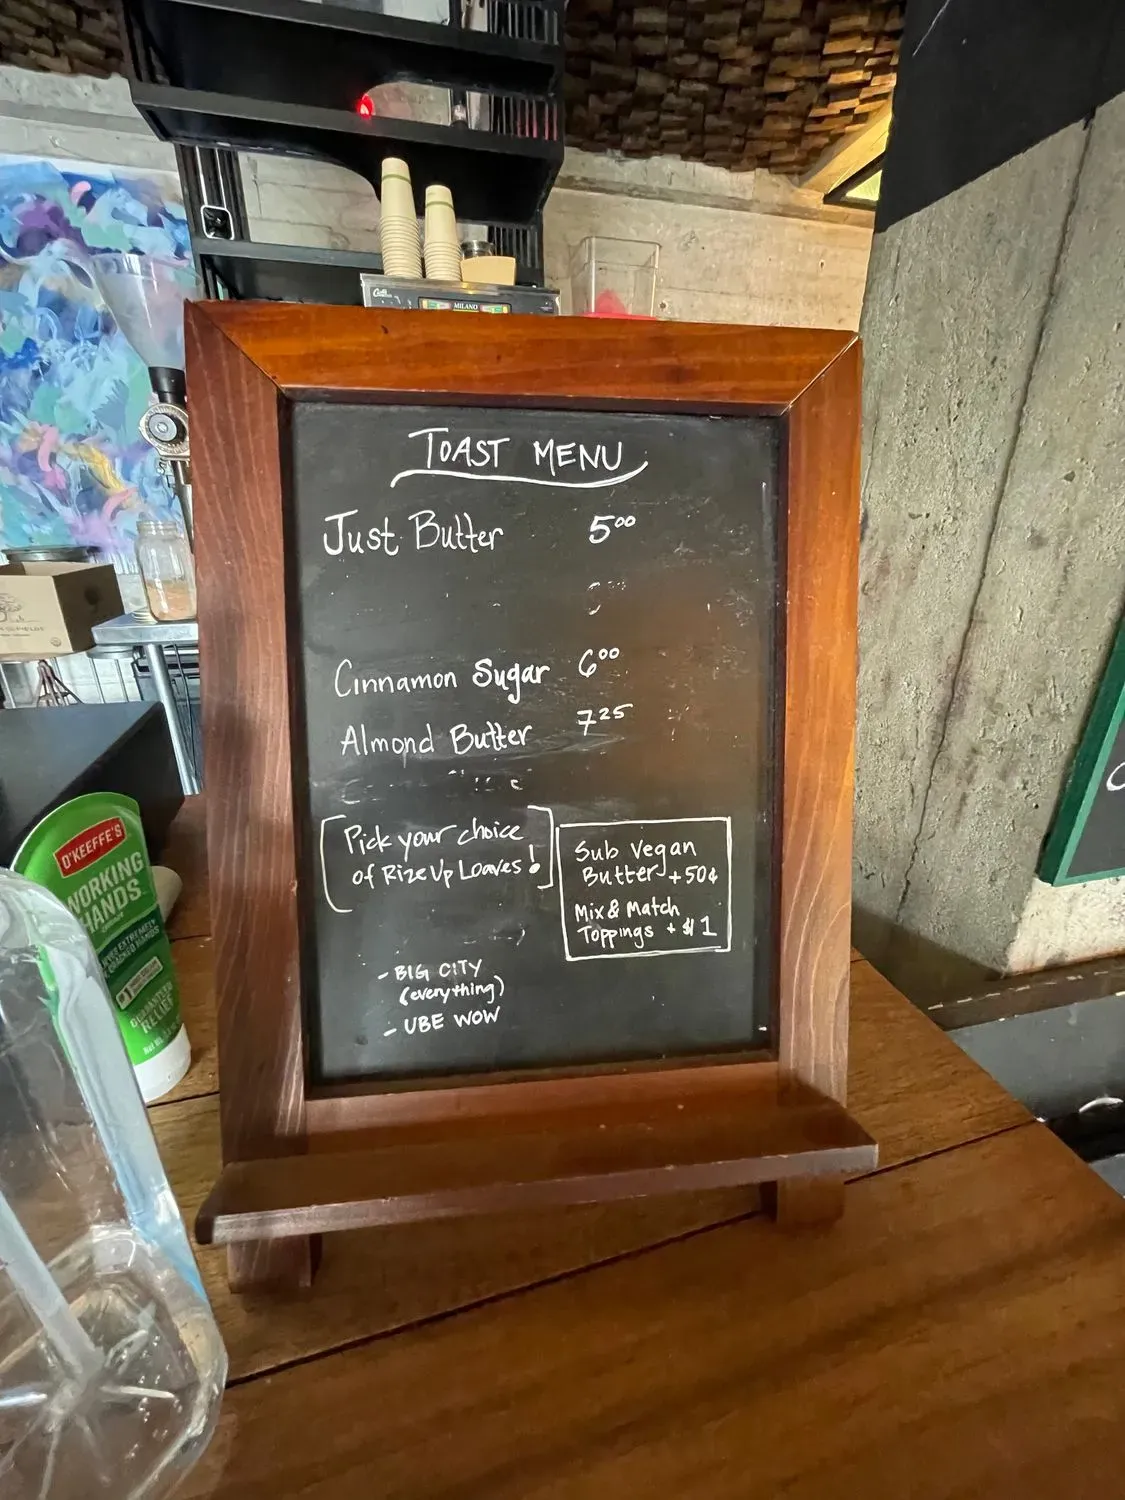 MILANO
TOAST MENU
Just Butter 5.00
Cinnamon Sugar 6.00
Almond Butter 7.25
[Pick your choice
of Rize Up Loaves!]
Sub Vegan
Butter +50¢
Mix & Match
Toppings + $1
- BIG CITY
(everything)
- UBE WOW
O'KEEFFE'S
WORKING
HANDS
GUARANTEED
RELIEF